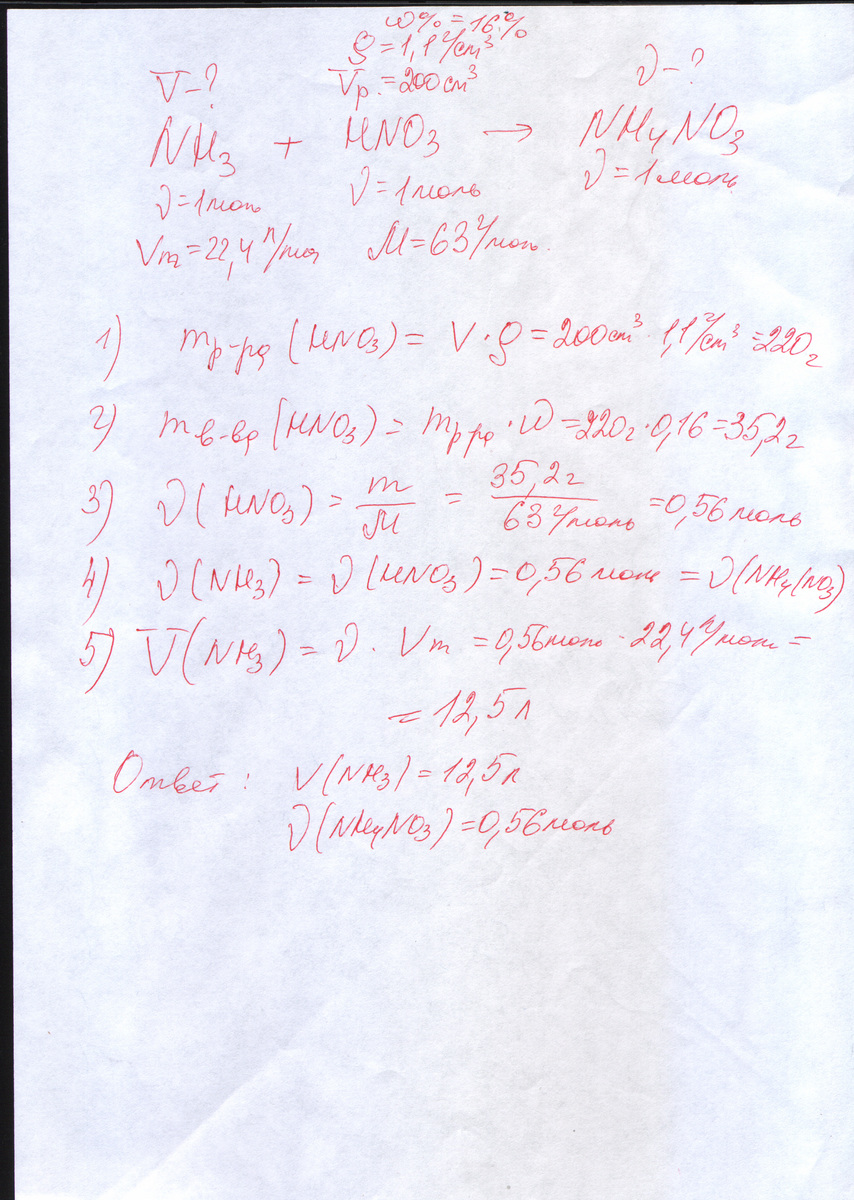 ω% = 16%
ρ = 1,1 г/см³
V-? Vр. = 200 см³ ν-?
NH₃ + HNO₃ → NH₄NO₃
ν = 1 моль ν = 1 моль ν = 1 моль
Vm = 22,4 л/моль M = 63 г/моль
1) mр-ра (HNO₃) = V · ρ = 200 см³ · 1,1 г/см³ = 220 г
2) mв-ва (HNO₃) = mр-ра · ω = 220 г · 0,16 = 35,2 г
3) ν (HNO₃) = m/M = 35,2 г / 63 г/моль = 0,56 моль
4) ν (NH₃) = ν (HNO₃) = 0,56 моль = ν (NH₄(NO₃)
5) V (NH₃) = ν · Vm = 0,56 моль · 22,4 л/моль =
= 12,5 л
Ответ: V (NH₃) = 12,5 л
ν (NH₄NO₃) = 0,56 моль